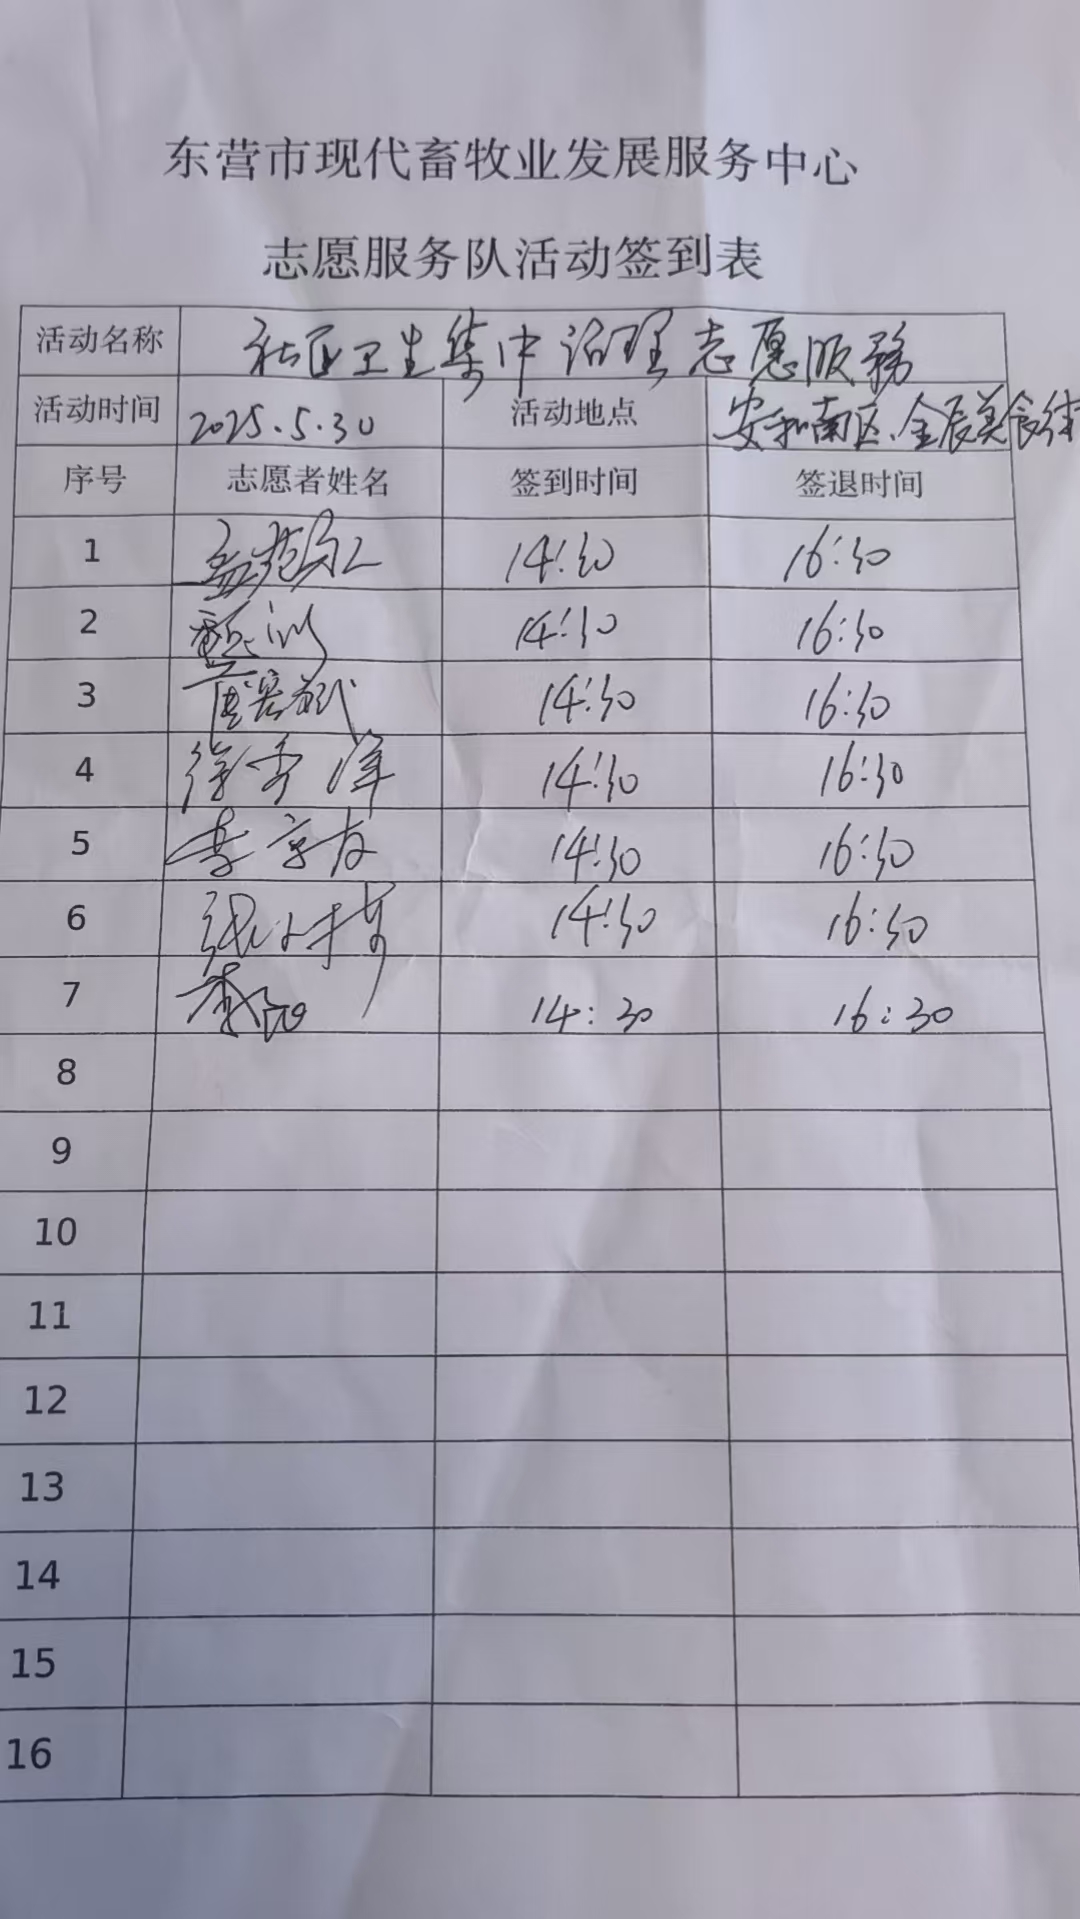 东营市现代畜牧业发展服务中心
志愿服务队活动签到表
活动名称 社区卫生集中治理志愿服务
活动时间 2025.5.30 活动地点 安和南区、金辰美食街
序号 志愿者姓名 签到时间 签退时间
1 14:30 16:30
2 14:30 16:30
3 14:30 16:30
4 徐秀峰 14:30 16:30
5 李京友 14:30 16:30
6 14:30 16:30
7 14:30 16:30
8
9
10
11
12
13
14
15
16